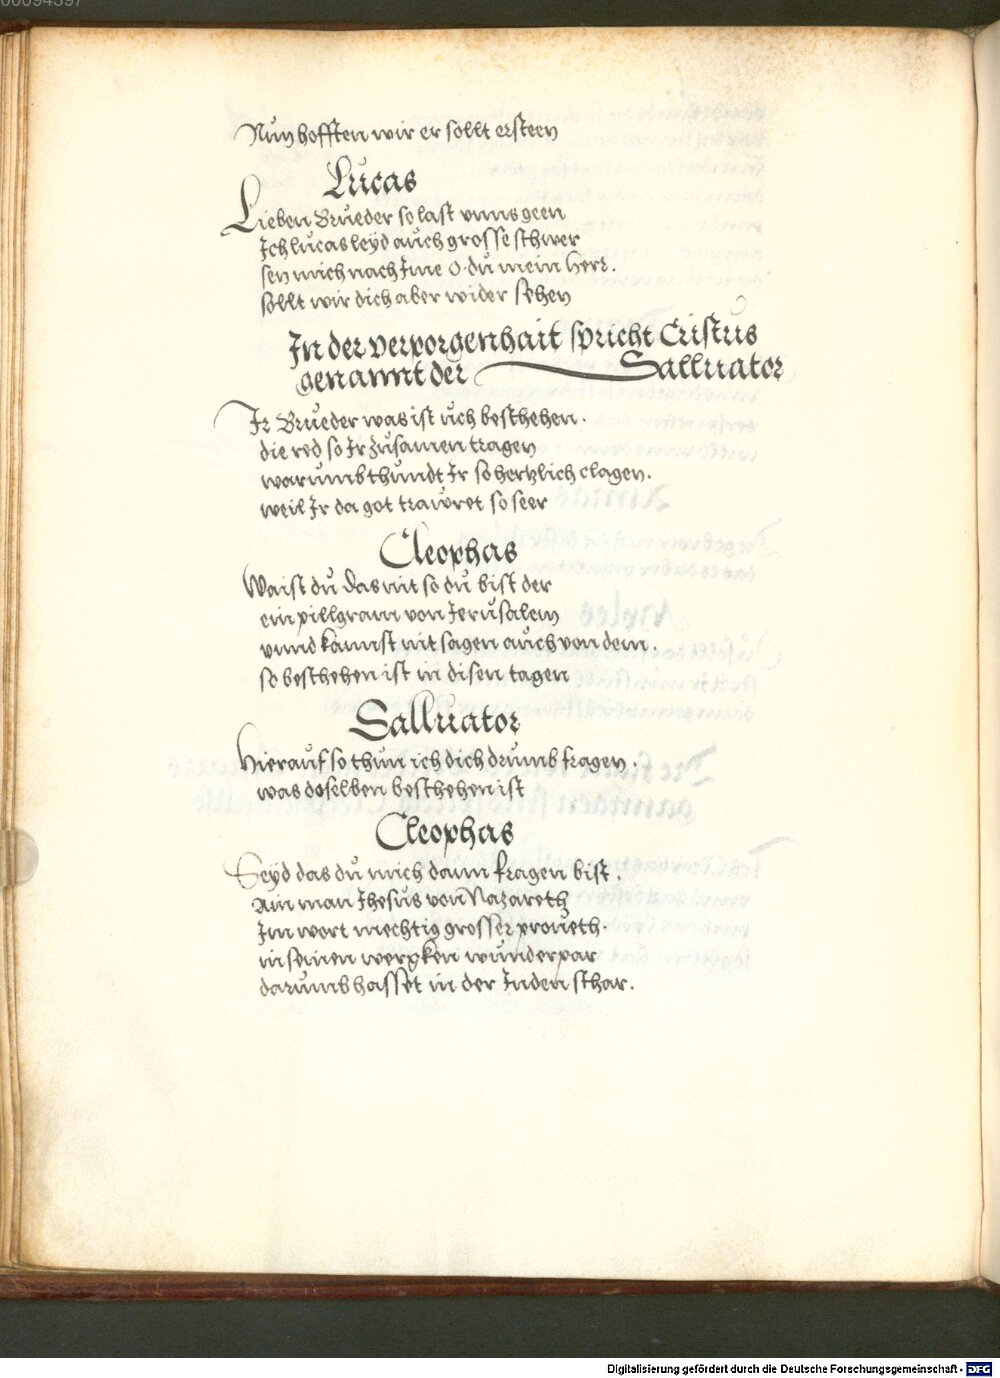 00094397
Nun hofften wir er sollt ersteen
Lucas
Lieben Brueder so last vnns geen
Ich lucas leyd auch grosse schwer
sen mich nach Ime O du mein herr.
sollt wir dich aber wider sehen
In der verporgenhait spricht Cristus
genannt der Salluator
Ir Brueder was ist uch beschehen.
die red so Ir zusamen tragen
warumb thundt Ir so hertzlich clagen.
weil Ir da got trawret so seer
Cleophas
Waist du das nit so du bist der
ein pillgram von Jerusalem
vnnd kannst nit sagen auch von dem.
so beschehen ist in disen tagen
Salluator
Hierauf so thun ich dich drumb fragen.
was doselben beschehen ist
Cleophas
Seyd das du mich dann fragen bist.
Ain man Jhesus von Nazareth
Im wort mechtig grosser proueth.
in seinen wergken wunderpar
darumb hasset in der Juden schar.
Digitalisierung gefördert durch die Deutsche Forschungsgemeinschaft - DFG